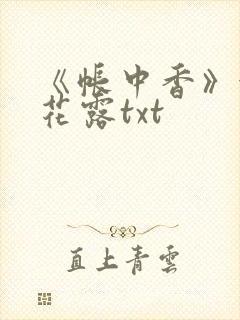 《帐中香》
花露txt
直上青雲